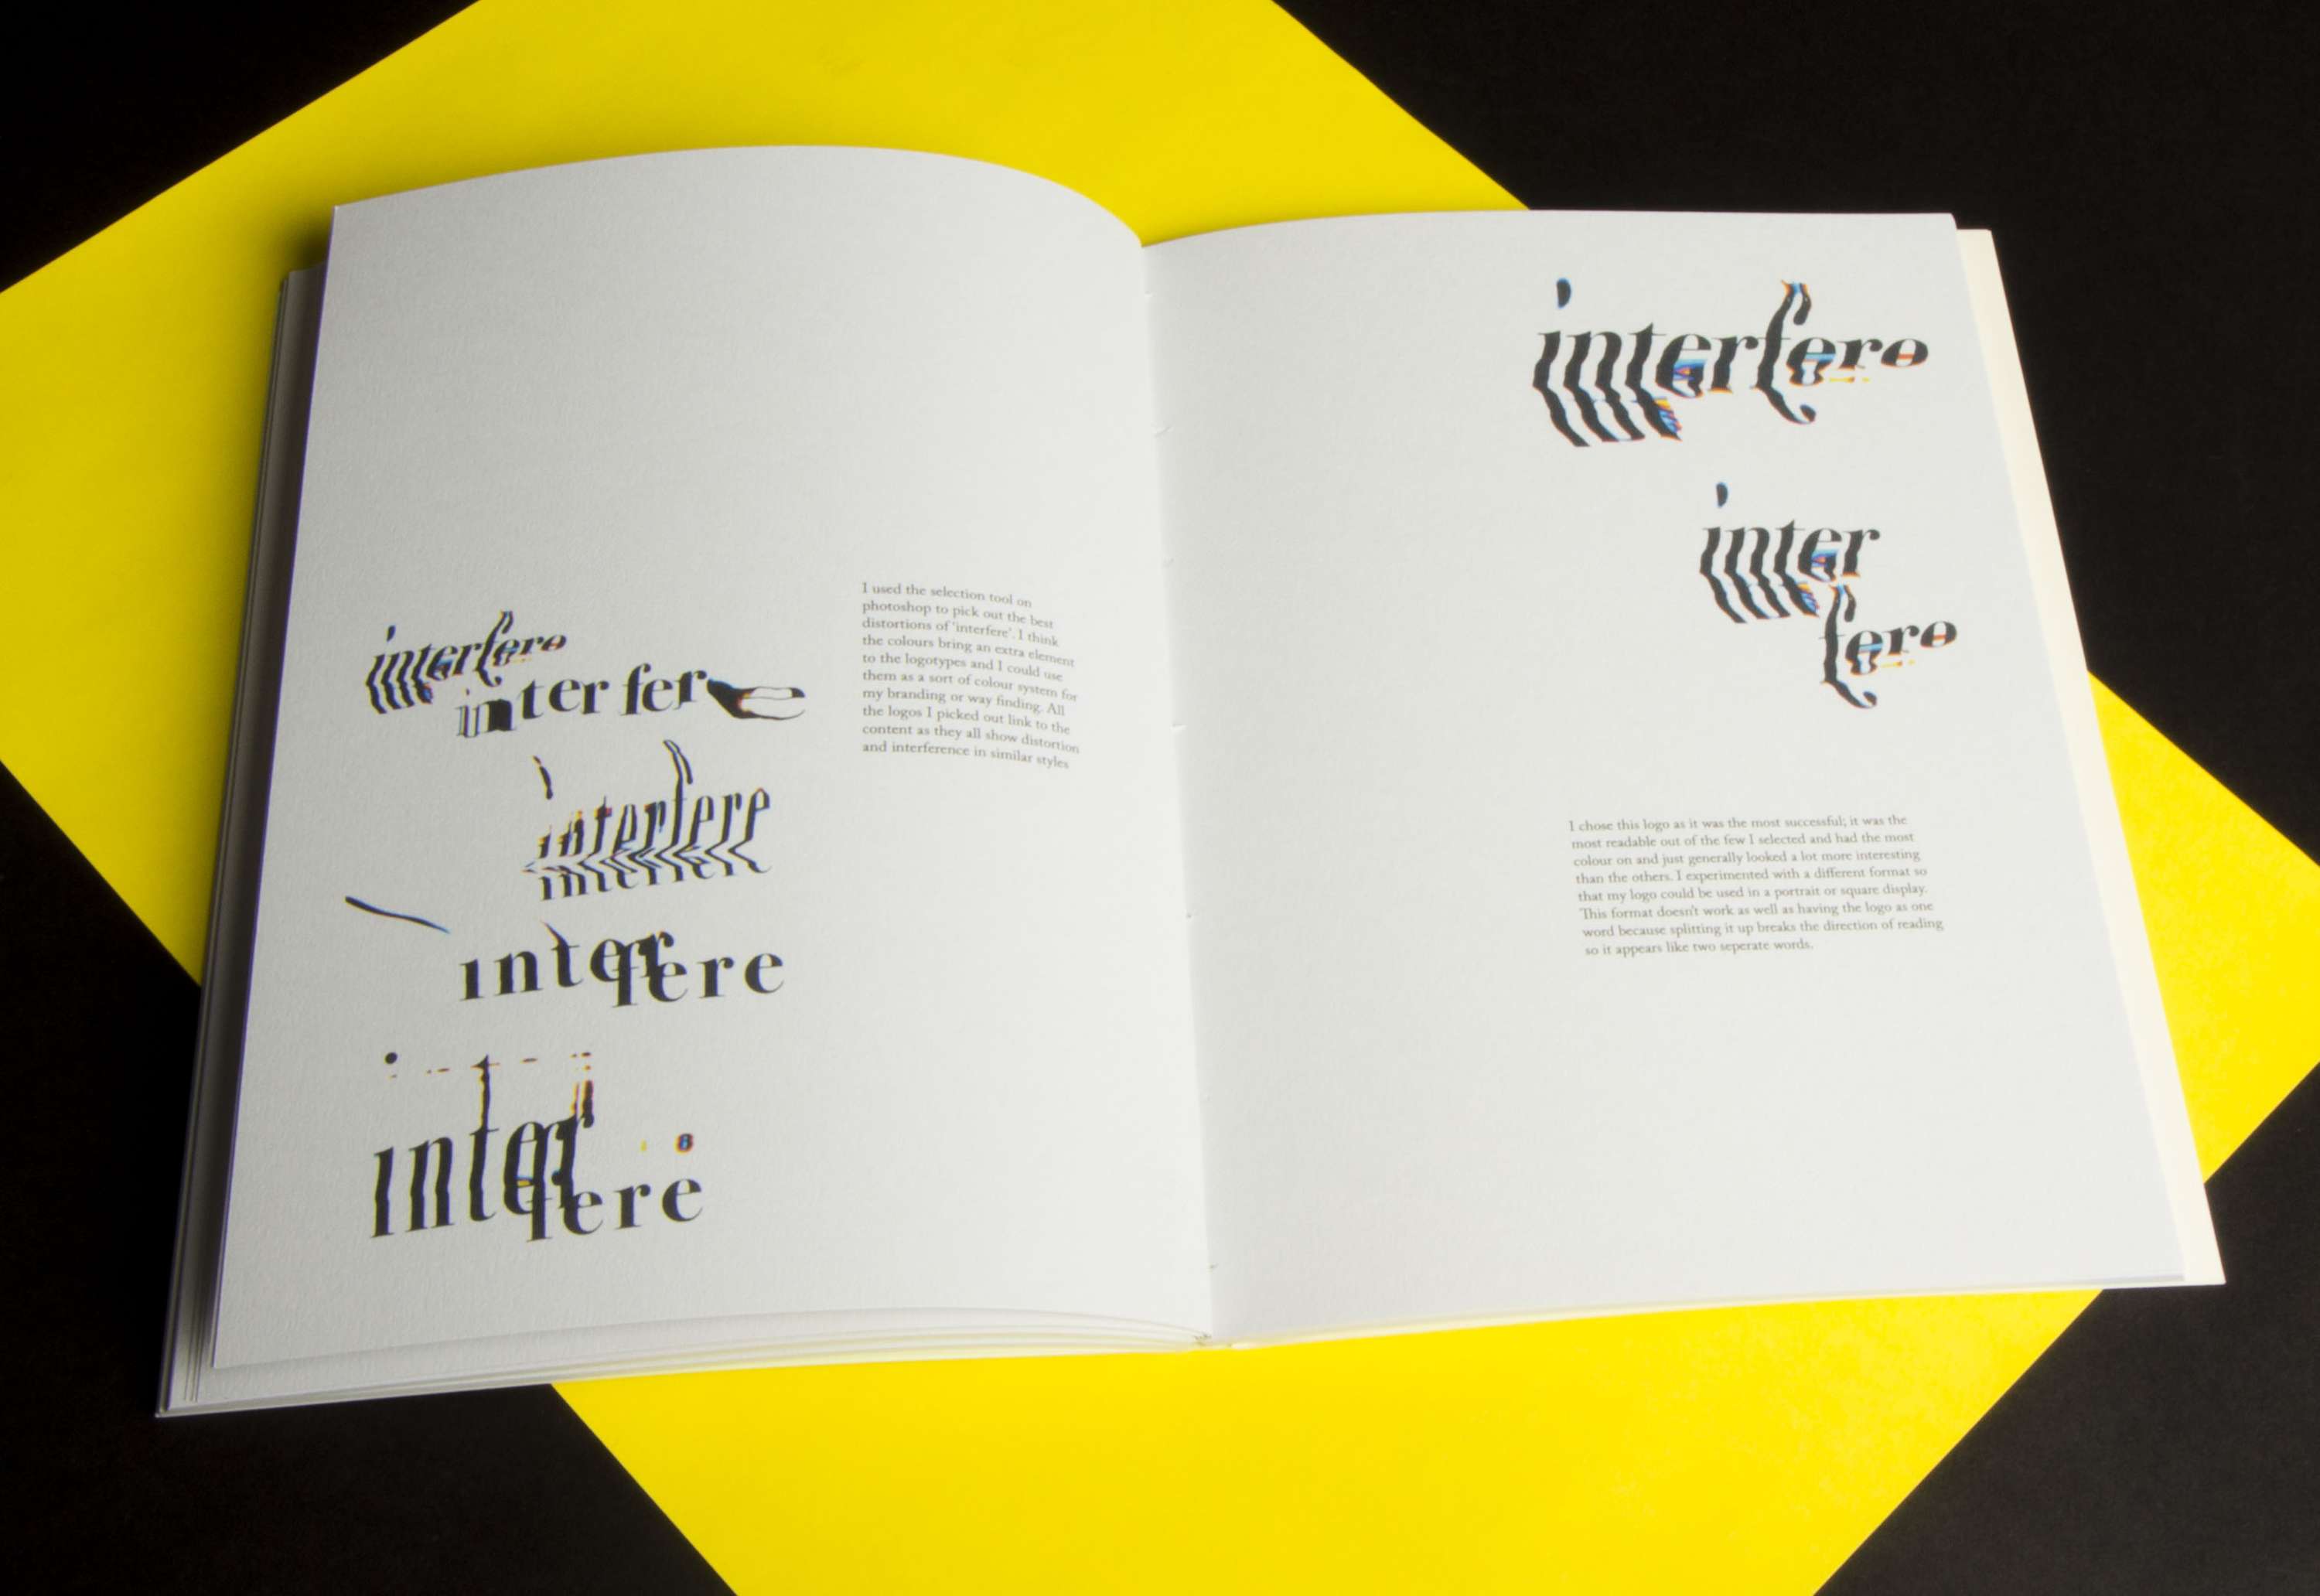 interfere
interfere
interfere
interfere
inter
fere
I used the selection tool on
photoshop to pick out the best
distortions of 'interfere'. I think
the colours bring an extra element
to the logotypes and I could use
them as a sort of colour system for
my branding or way finding. All
the logos I picked out link to the
content as they all show distortion
and interference in similar styles
interfere
inter
fere
I chose this logo as it was the most successful; it was the
most readable out of the few I selected and had the most
colour on and just generally looked a lot more interesting
than the others. I experimented with a different format so
that my logo could be used in a portrait or square display.
This format doesn't work as well as having the logo as one
word because splitting it up breaks the direction of reading
so it appears like two seperate words.